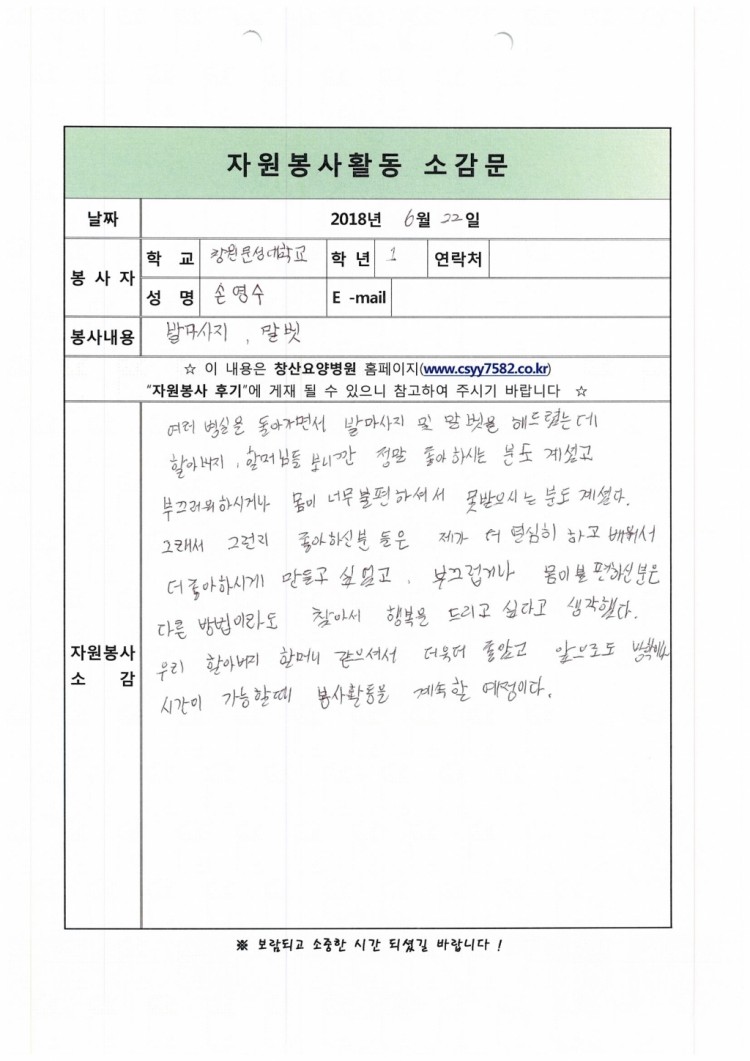 자원봉사활동 소감문
날짜 2018년 6월 22일
봉사자 학 교 창원문성대학교 학년 1 연락처
성 명 손영수 E-mail
봉사내용 발마사지, 말벗
☆ 이 내용은 창산요양병원 홈페이지(www.csyy7582.co.kr)
"자원봉사 후기"에 게재 될 수 있으니 참고하여 주시기 바랍니다 ☆
자원봉사 소 감
여러 병실을 돌아가면서 발마사지 및 말벗을 해드렸는데
할아버지, 할머님들 보니깐 정말 좋아하시는 분도 계셨고
부끄러워하시거나 몸이 너무불편하셔서 못받으시는 분도 계셨다.
그래서 그런지 좋아하신분 들은 제가 더 열심히 하고 배워서
더좋아하시게 만들고 싶었고, 부끄럽거나 몸이불편하신분은
다른 방법이라도 찾아서 행복을 드리고 싶다고 생각했다.
우리 할아버지 할머니 같으셔서 더욱더 좋았고 앞으로도
시간이 가능할때 봉사활동을 계속할 예정이다.
※ 보람되고 소중한 시간 되셨길 바랍니다 !